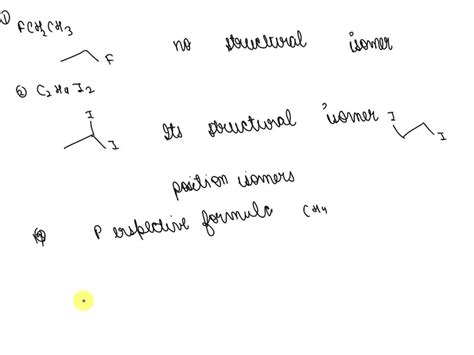 1) FCH2CH3
F no structural isomer
2) C2H4I2
I
I Its structural isomer I I
position isomers
Perspective formula CH4